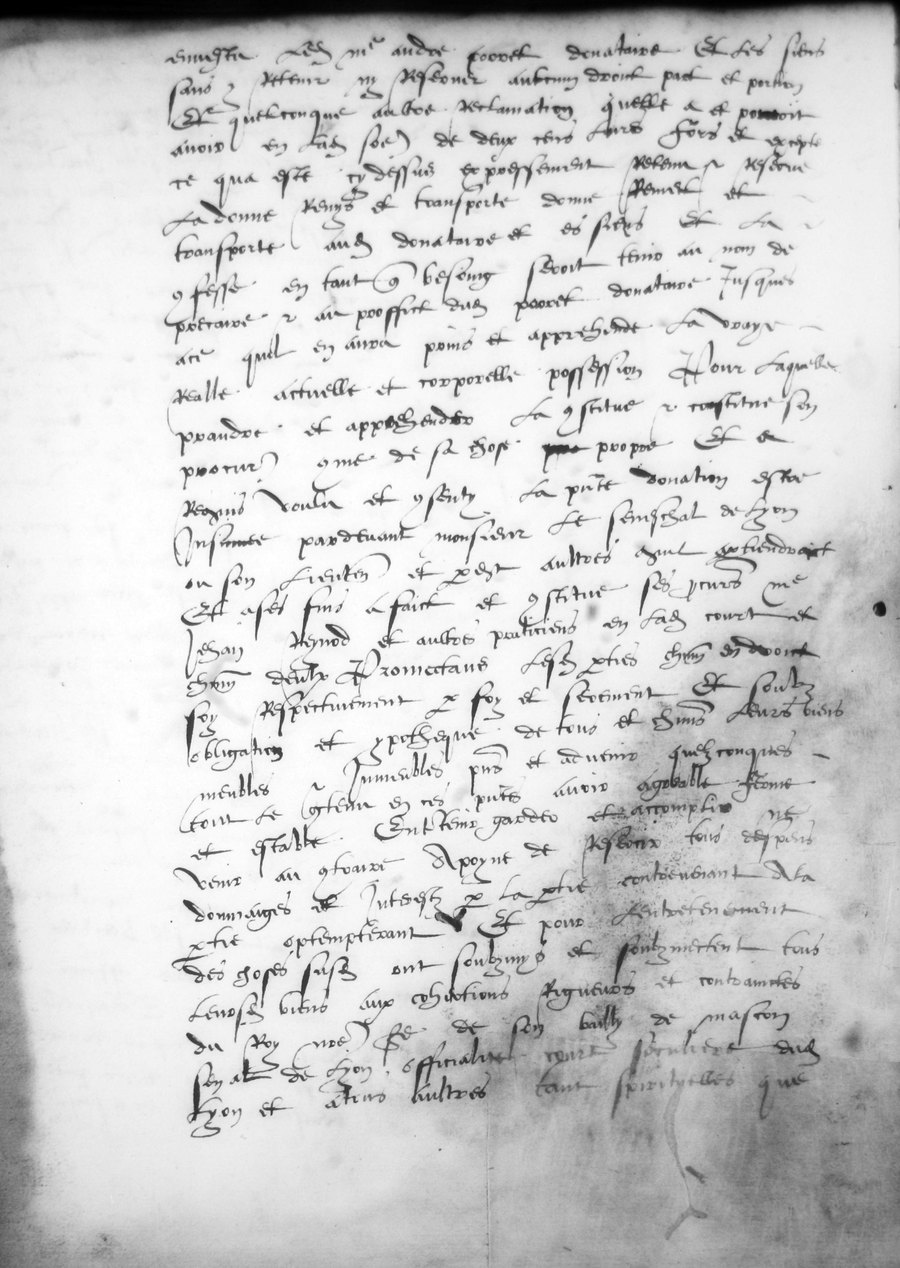 Led me andre poret donataire Et les siens
sans y Retenir ny Reserver aulcung droict part et portion
Et quelconque aultre Reclamation quelle a et pouvoit
avoir en lad so[mm]e de deux cens livres Fors et excepte
ce qua este cy dessus expressement Retenu et Reserve
La donne Remys et transporte donne Remect et
transporte aud donataire et es siens Et La
9fesse en tant q besoing seroit tenir au nom de
precaire et au prouffict dud poret donataire Jusques
ace quil en aura prins et apprehende La vraye
Realle actuelle et corporelle possession Pour Laquelle
prandre et apprehender La 9stitue et constitue son
procur 9me de sa chose propre Et a
Requis voulu et 9senty La pnte donation estre
Insinuee pardevant monsieur Le seneschal de Lyon
ou son Lieuten et pdt aultres a quil apartiendroict
Et a ses fins a faict et 9stitue ses pcurs me
Jehan Reynod et aultres praticiens en Lad court et
chun deulx Promectans Lesd pties chun endroict
soy Respectivement p foy et serement Et soubz
obligation et ypotheque de tous et chuns Leurs biens
meubles Immeubles pns et advenir quelzconques
tout Le 9tenu en ces pntes avoir agreable ferme
et estable Entretenir garder et accomplir ne
venir au 9traire Apoyne de Reffectir tous despens
dommaiges et Interestz p La ptie contrevenant A la
ptie optemperant Et pour Lentretenement
des choses susd ont soubzmys et soubzmectent tous
Leursd biens aux cohertions Rigueurs et contrainctes
du Roy nre Sr de son bailly de mascon
senal de Lyon officialite court seculiere dud
Lyon et a tous aultres tant spirituelles que